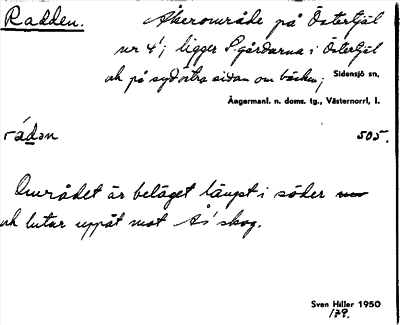 Radden. Åkerområde på Östertjäl
nr 4'; ligger S. gårdarna i Östertjäl
och på sydöstra sidan om bäcken; Sidensjö sn,
Ångermanl. n. doms. tg., Västernorrl, l.
rádən 505.
Området är beläget längst i söder
och lutar uppåt mot Ås' skog.
Sven Hiller 1950
179.